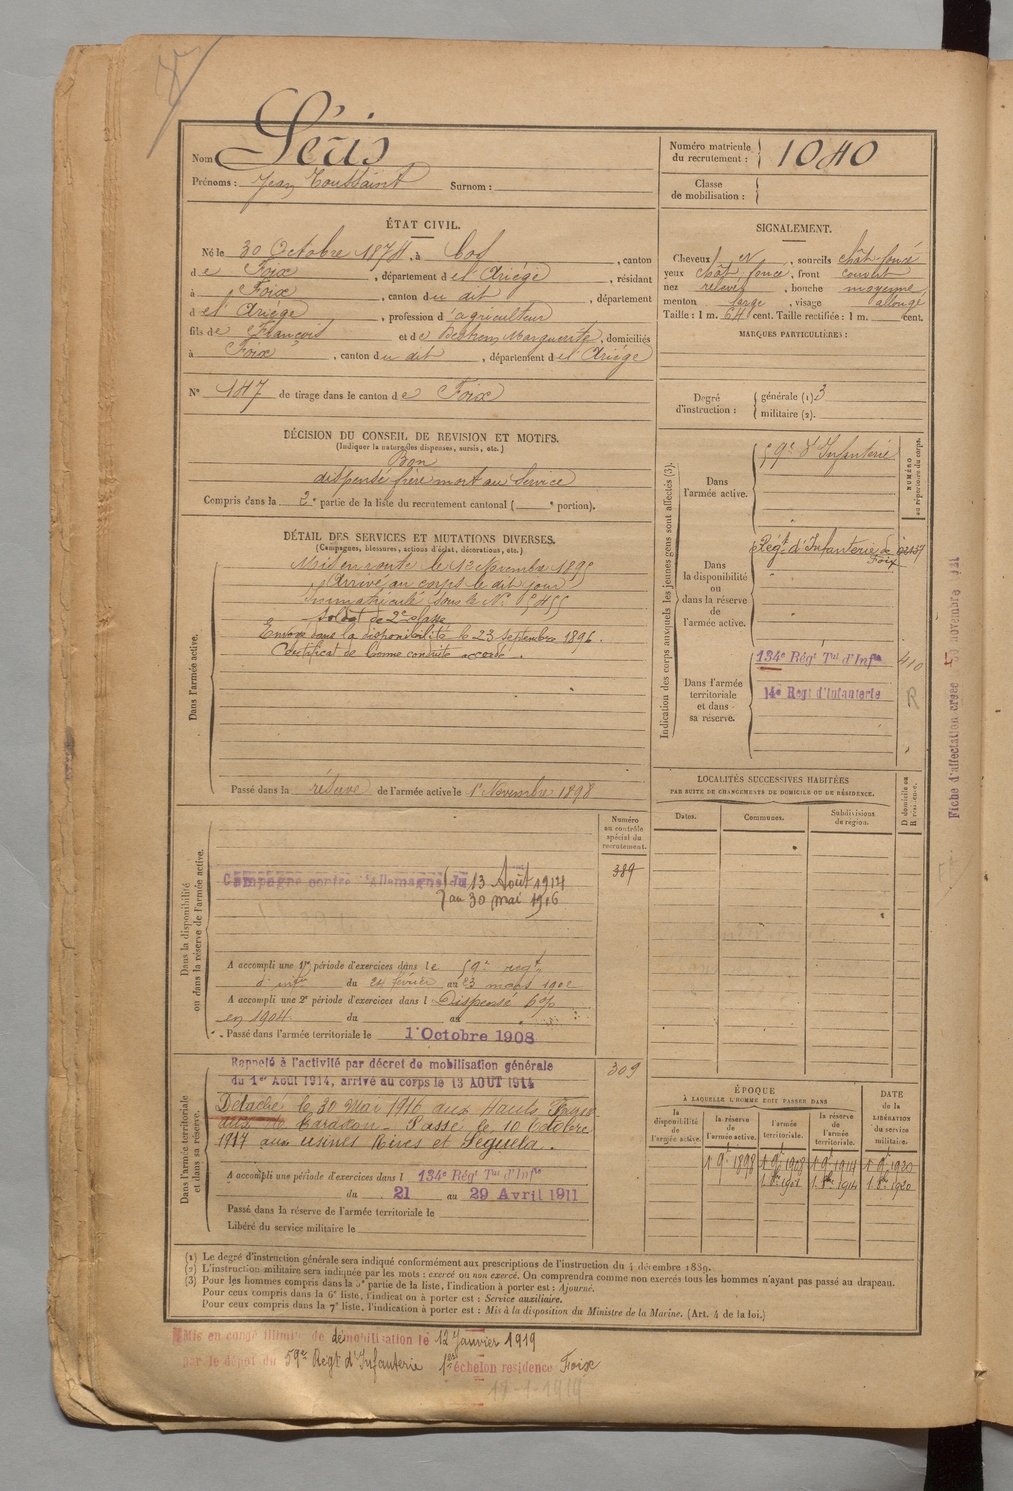 Nom Séris
Prénoms : Jean Toussaint Surnom :
Numéro matricule du recrutement : 1040
Classe de mobilisation :
ÉTAT CIVIL.
Né le 30 Octobre 1874, à Cos, canton
de Foix, département de l'Ariége, résidant
à Foix, canton du dit, département
de l'Ariége, profession d'agriculteur
fils de François et de Marguerite, domiciliés
à Foix, canton du dit, département de l'Ariége
N° 147 de tirage dans le canton de Foix
SIGNALEMENT.
Cheveux N, sourcils chât foncé
yeux chât foncé, front couvert
nez relevé, bouche moyenne
menton large, visage allongé
Taille : 1 m. 64 cent. Taille rectifiée : 1 m. cent.
MARQUES PARTICULIÈRES :
Degré d'instruction : générale (1) 3
militaire (2).
DÉCISION DU CONSEIL DE REVISION ET MOTIFS.
(Indiquer la nature des dispenses, sursis, etc.)
Bon
dispensé frère mort au service
Compris dans la 2e partie de la liste du recrutement cantonal ( e portion).
DÉTAIL DES SERVICES ET MUTATIONS DIVERSES.
(Campagnes, blessures, actions d'éclat, décorations, etc.)
Dans l'armée active.
Mis en route le 13 Novembre 1895
Arrivé au corps le dit jour
Immatriculé sous le N° 5455
Soldat de 2e classe
Envoyé dans la disponibilité le 23 Septembre 1896.
Certificat de bonne conduite accordé.
Passé dans la réserve de l'armée active le 1er Novembre 1898
Indication des corps auxquels les jeunes gens sont affectés (3).
NUMÉRO au répertoire du corps.
Dans l'armée active.
59e d'Infanterie
Dans la disponibilité ou dans la réserve de l'armée active.
Régt d'Infanterie de Foix
Dans l'armée territoriale et dans sa réserve.
134e Régt Tal d'Infie
410
14e Regt d'Infanterie
R
Fiche d'affectation créée novembre
LOCALITÉS SUCCESSIVES HABITÉES
PAR SUITE DE CHANGEMENTS DE DOMICILE OU DE RÉSIDENCE.
Dates. Communes. Subdivisions de région. D domicile ou R résidence.
Dans la disponibilité ou dans la réserve de l'armée active.
Numéro au contrôle spécial du recrutement.
389
Campagne contre l'Allemagne du 13 Août 1914
au 30 mai 1916
A accompli une 1re période d'exercices dans le 59e regt
d'inf du 24 février au 23 mars 1902
A accompli une 2e période d'exercices dans l Dispensé 6%
en 1904 du au
Passé dans l'armée territoriale le 1er Octobre 1908
Dans l'armée territoriale et dans sa réserve.
309
Rappelé à l'activité par décret de mobilisation générale
du 1er Août 1914, arrivé au corps le 13 AOUT 1914
Détaché le 30 Mai 1916 aux Hauts Four-
neaux de Tarascon. Passé le 10 Octobre
1917 aux usines Rives et Séguéla.
A accompli une période d'exercices dans l 134e Régt Tal d'Infie
du 21 au 29 Avril 1911
Passé dans la réserve de l'armée territoriale le
Libéré du service militaire le
ÉPOQUE
À LAQUELLE L'HOMME DOIT PASSER DANS
la disponibilité de l'armée active. la réserve de l'armée active. l'armée territoriale. la réserve de l'armée territoriale. DATE de la LIBÉRATION du service militaire.
1 9bre 1898 1 9bre 1908 1 9bre 1914 1 9bre 1920
1 8bre 1908 1 8bre 1914 1 8bre 1920
(1) Le degré d'instruction générale sera indiqué conformément aux prescriptions de l'instruction du 4 décembre 1889.
(2) L'instruction militaire sera indiquée par les mots : exercé ou non exercé. On comprendra comme non exercés tous les hommes n'ayant pas passé au drapeau.
(3) Pour les hommes compris dans la 5e partie de la liste, l'indication à porter est : Ajourné.
Pour ceux compris dans la 6e liste, l'indication à porter est : Service auxiliaire.
Pour ceux compris dans la 7e liste, l'indication à porter est : Mis à la disposition du Ministre de la Marine. (Art. 4 de la loi.)
Mis en congé illimité de démobilisation le 12 Janvier 1919
par le dépôt du 59e Regt d'Infanterie 1er échelon residence Foix